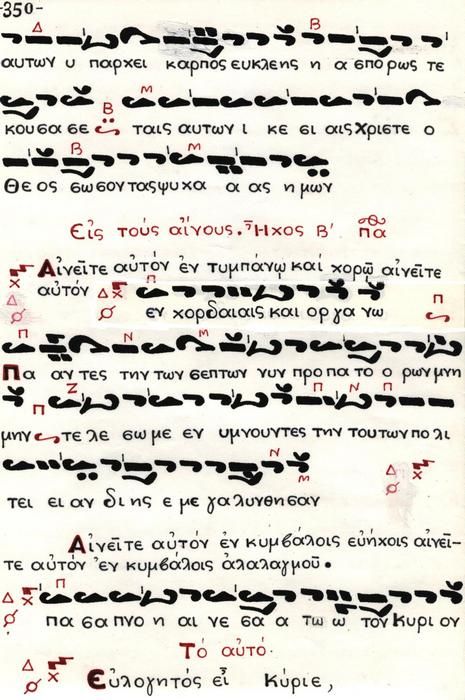 -350-
αυτων υ παρχει καρπος ευκλης η α σπο ρως τε
κουσα σε ταις αυτων ι κε σι αις Χριστε ο
Θε ος σωσον τας ψυχα α ας η μων
Εἰς τούς αἴνους. Ἦχος Β΄ πα
Αἰνεῖτε αὐτόν ἐν τυμπάνῳ καί χορῷ αἰνεῖτε
αὐτόν
εν χορδαιαις και ορ γα νω
Πα αν τες την των σεπτων νυν προ πα το ο ρων μνη
μην τε λε σω με εν υμνουντες την τουτων πο λι
τει ει αν δι ης ε με γα λυνθησαν
Αἰνεῖτε αὐτόν ἐν κυμβάλοις εὐήχοις αἰνεῖ-
τε αὐτόν ἐν κυμβάλοις ἀλαλαγμοῦ.
πα σα πνο η αι νε σα α τω ω τον Κυρι ον
Τό αὐτό.
Εὐλογητός εἶ Κύριε,